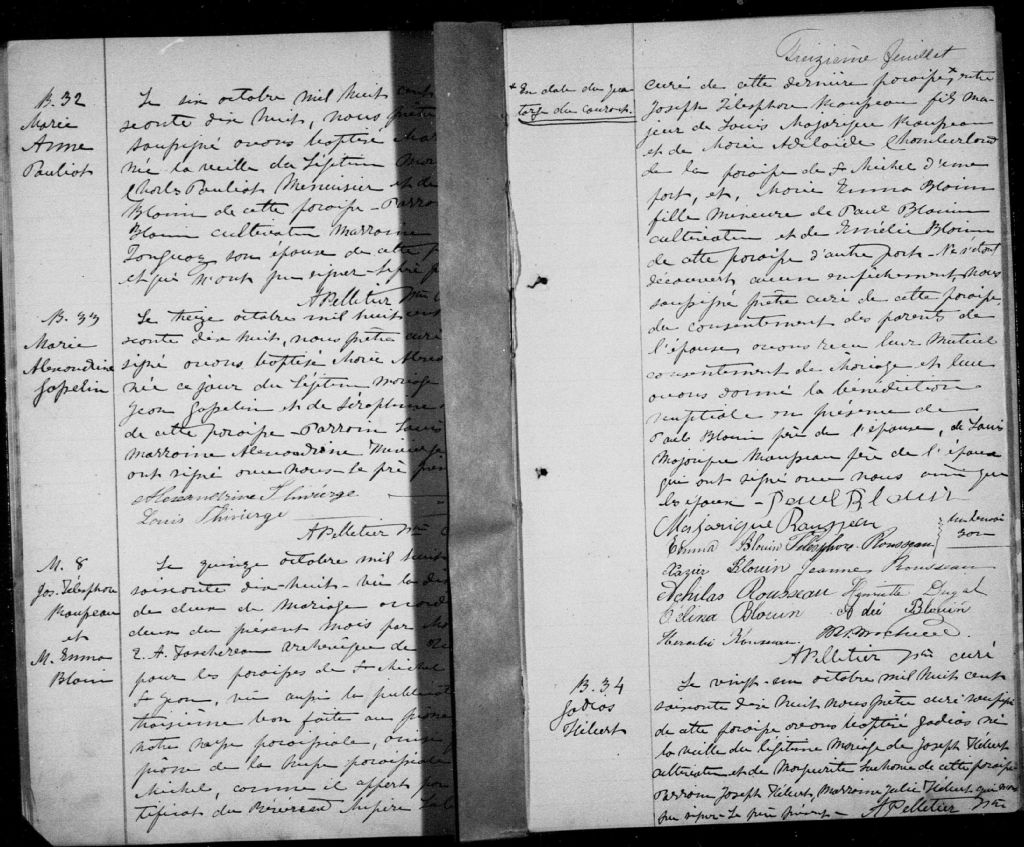 B. 32
Marie
Anne
Pauliot
Le six octobre mil huit cent
soixante dix huit, nous prêtre
soussigné avons baptisé
née la veille du légitime
Charles Pauliot Menuisier et de
Blouin de cette paroisse - Parrain
Blouin cultivateur Marraine
son épouse de cette
et qui n'ont pu signer
A Pelletier Ptre
B. 33
Marie
Alexandrine
Gosselin
Le treize octobre mil huit cent
soixante dix huit, nous prêtre curé
signé avons baptisé Marie
née ce jour du légitime mariage
Jean Gosselin et de Séraphine
de cette paroisse - Parrain Louis
marraine Alexandrine Thivierge
ont signé avec nous - le père
Alexandrine Thivierge
Louis Thivierge
A Pelletier Ptre
M. 8
Jos. Télesphore
Rousseau
et
M. Emma
Blouin
Le quinze octobre mil huit
soixante dix-huit - vu la
de deux de mariage
deux du présent mois par
E. A. Taschereau archevêque de
pour les paroisses de St Michel
St Jean, vu aussi la publication
troisième ban faite au prône
notre messe paroissiale, ainsi
prône de la messe paroissiale
Michel, comme il appert
tificat du Révérend
Treizième feuillet
* En date du qua-
torze du courant.
curé de cette dernière paroisse,* entre
Joseph Télesphore Rousseau fils ma-
jeur de Louis Majorique Rousseau
et de Marie Adélaide Chamberland
de la paroisse de St Michel d'une
part, et, Marie Emma Blouin
fille mineure de Paul Blouin
cultivateur et de Emélie Blouin
de cette paroisse d'autre part - Ne s'étant
découvert aucun empêchement, nous
soussigné prêtre curé de cette paroisse,
du consentement des parents de
l'épouse, avons reçu leur mutuel
consentement de Mariage et leur
avons donné la bénédiction
nuptiale en présence de
Paul Blouin père de l'épouse, de Louis
Majorique Rousseau père de l'époux
qui ont signé avec nous ainsi que
les époux - Paul Blouin
Majorique Rousseau
Emma Blouin Télesphore Rousseau
Blouin Rousseau
Achilas Rousseau Henriette
Célina Blouin Blouin
Rousseau.
A Pelletier Ptre curé
B. 34
Gadias
Hébert
Le vingt-un octobre mil huit cent
soixante dix huit nous prêtre curé soussigné
de cette paroisse avons baptisé Gadias né
la veille du légitime mariage de Joseph Hébert
cultivateur et de Marguerite de cette paroisse
Parrain Joseph Hébert, Marraine Julie Hébert qui n'ont
pu signer - Le père présent - A Pelletier Ptre